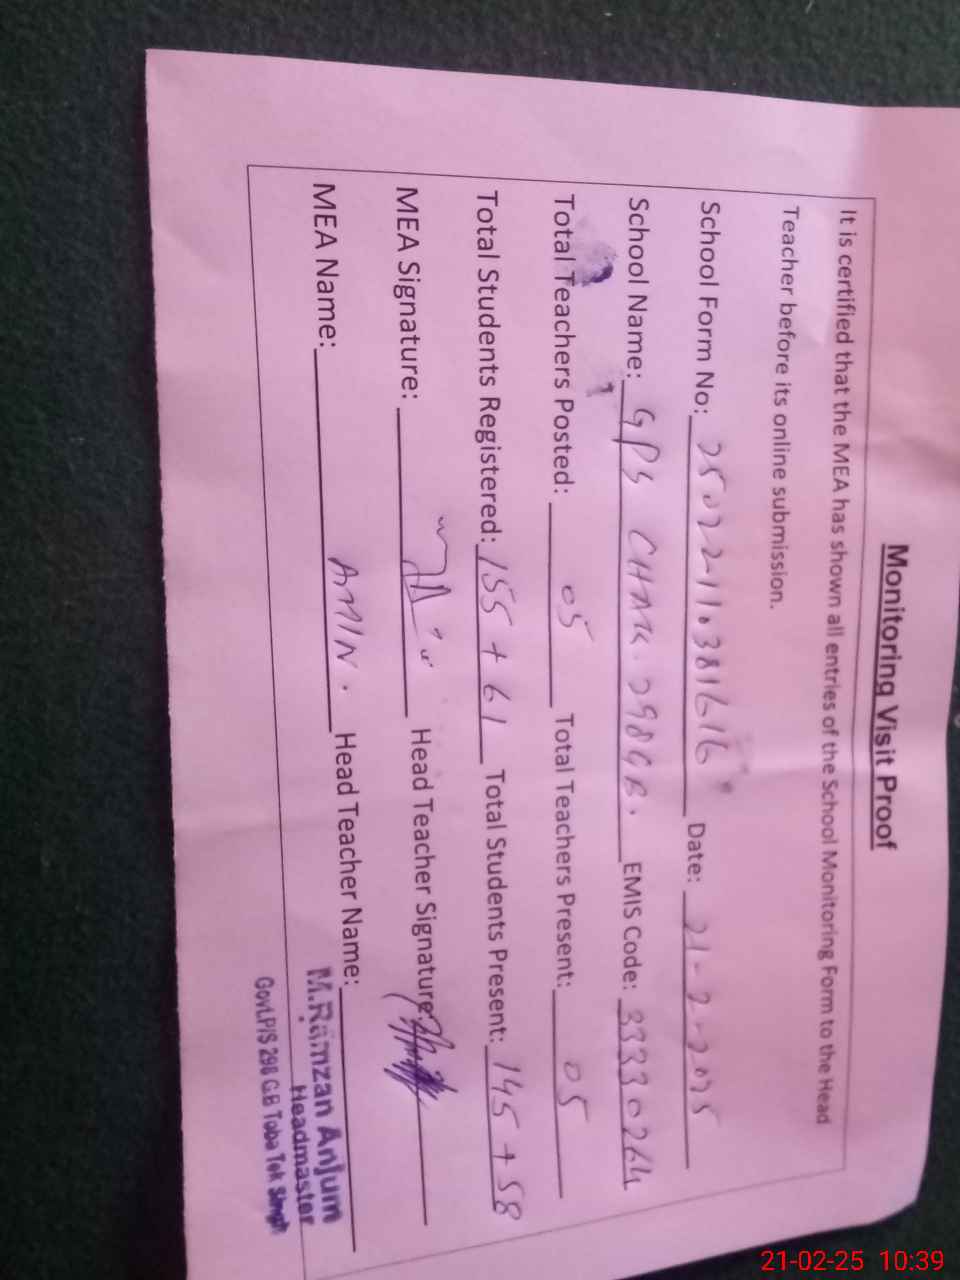 Monitoring Visit Proof
It is certified that the MEA has shown all entries of the School Monitoring Form to the Head
Teacher before its online submission.
School Form No: Date: 21-2-2025
School Name: GPS CHAK. 298GB. EMIS Code: 33330264
Total Teachers Posted: 05 Total Teachers Present: 05
Total Students Registered: 155 + 61 Total Students Present: 145 + 58
MEA Signature: Head Teacher Signature:
MEA Name: AMIN. Head Teacher Name:
M.Ramzan Anjum
Headmaster
Govt.P/S 298 G.B Toba Tek Singh
21-02-25 10:39